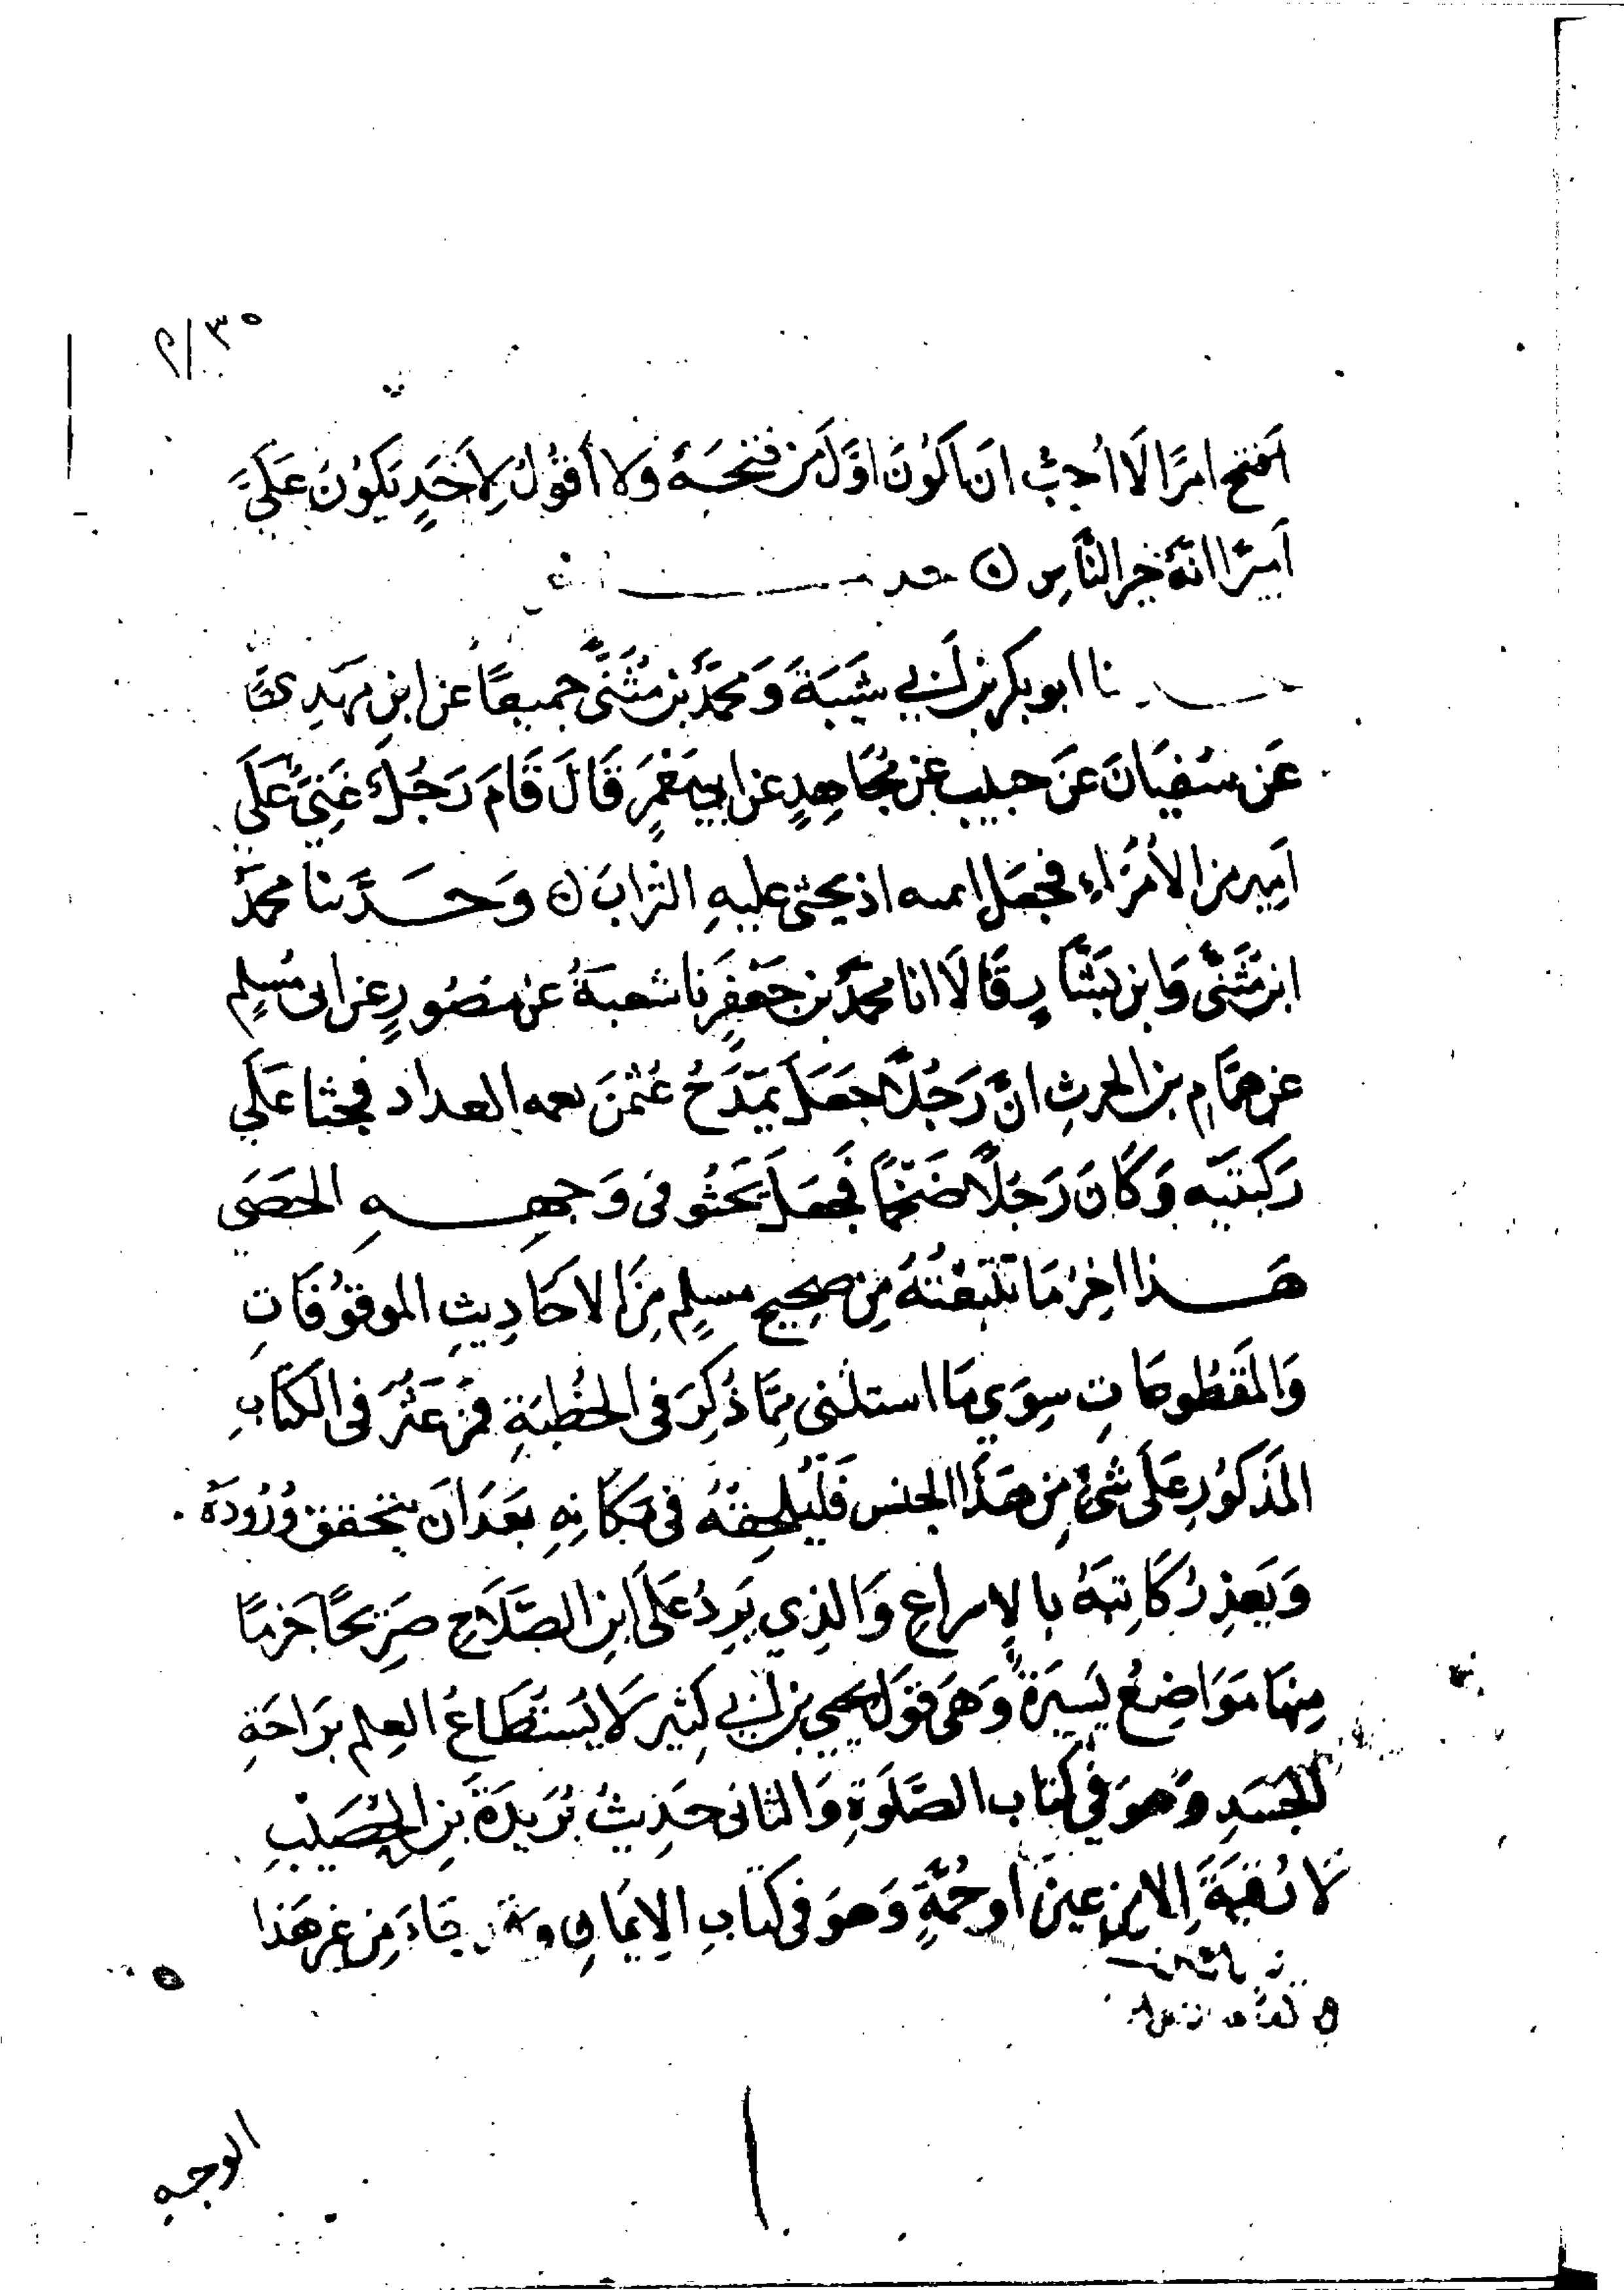 ٢/٣٥
اَفتتح امرًا لَا اُحِبُّ ان اكُونَ اوَّلَ من فتحَهُ وَلا أقُولُ لِأحَدٍ يَكُونُ عَلَيَّ
أميرًا انهُ خير النَّاسِ
نا ابو بكر بن أبي شَيبَةَ وَمحمدُ بن مثَنَّى جميعًا عن ابن مَهدِي
عَن سُفيَانَ عَن حبيب عن مُجَاهِدٍ عن ابي مَعْمَرٍ قَالَ قَامَ رَجُلٌ يُثنِي عَلَي
اَمِير من الأُمَرَاءِ فجعَل يحثى عليهِ الترابَ ن وَحَدَّثنا محمدُ
ابن مثَنَّى وَابن بَشَّارٍ قَالَا انا محمدُ بن جَعْفَرٍ نا شعبَةُ عن منصُورٍ عن ابى مُسْلِم
عن همَّامِ بن الحرثِ انَّ رَجُلًا جَعَلَ يَمْدَحُ عُثْمنَ فجثا عَلَي
رُكبَتَيه وَكَانَ رَجُلًا ضَخْمًا فَجَعَلَ يَحْثُو في وَجهِهِ الحَصَى
هَذا اخِرُ مَا تَتَبَعْتُهُ مِن صَحِيح مسلِم مِنَ الاحَادِيثِ الموقُوفَاتِ
وَالمَقطُوعَاتِ سِوَي مَا استثنى مِمَّا ذُكِرَ فى الخُطبَةِ فمَن عَثَرَ فى الكتَابِ
المَذكُورِ عَلَى شَىءٍ مِن هَذَا الجنس فَلْيُلحِقهُ فى مَكَانِهِ بَعَدَ انَ يتحقق وُرُودَهُ
وَيَعذِرُ كَاتِبَهُ بالإسراعِ وَالذِي يَرِدُ عَلَى ابن الصَّلَاحِ صَرِيحًا جَزمًا
مِنهَا مَوَاضِعُ يَسِيرَةٌ وَهَىَ قَولُ يحيى بن أبي كثِير لَا يُسْتَطَاعُ العِلم بَرَاحَةِ
الجَسَدِ وَهوَ في كتَاب الصَّلَوةِ وَالثانى حَدِيثُ بُرَيدَةَ بن الحُصَيْبِ
لَا رُقيَةَ إلا من عين اَو حُمَةٍ وَهوَ فى كتَابِ الإيمَانِ وقد جَاءَ مِن غير هَذا
الوجهِ